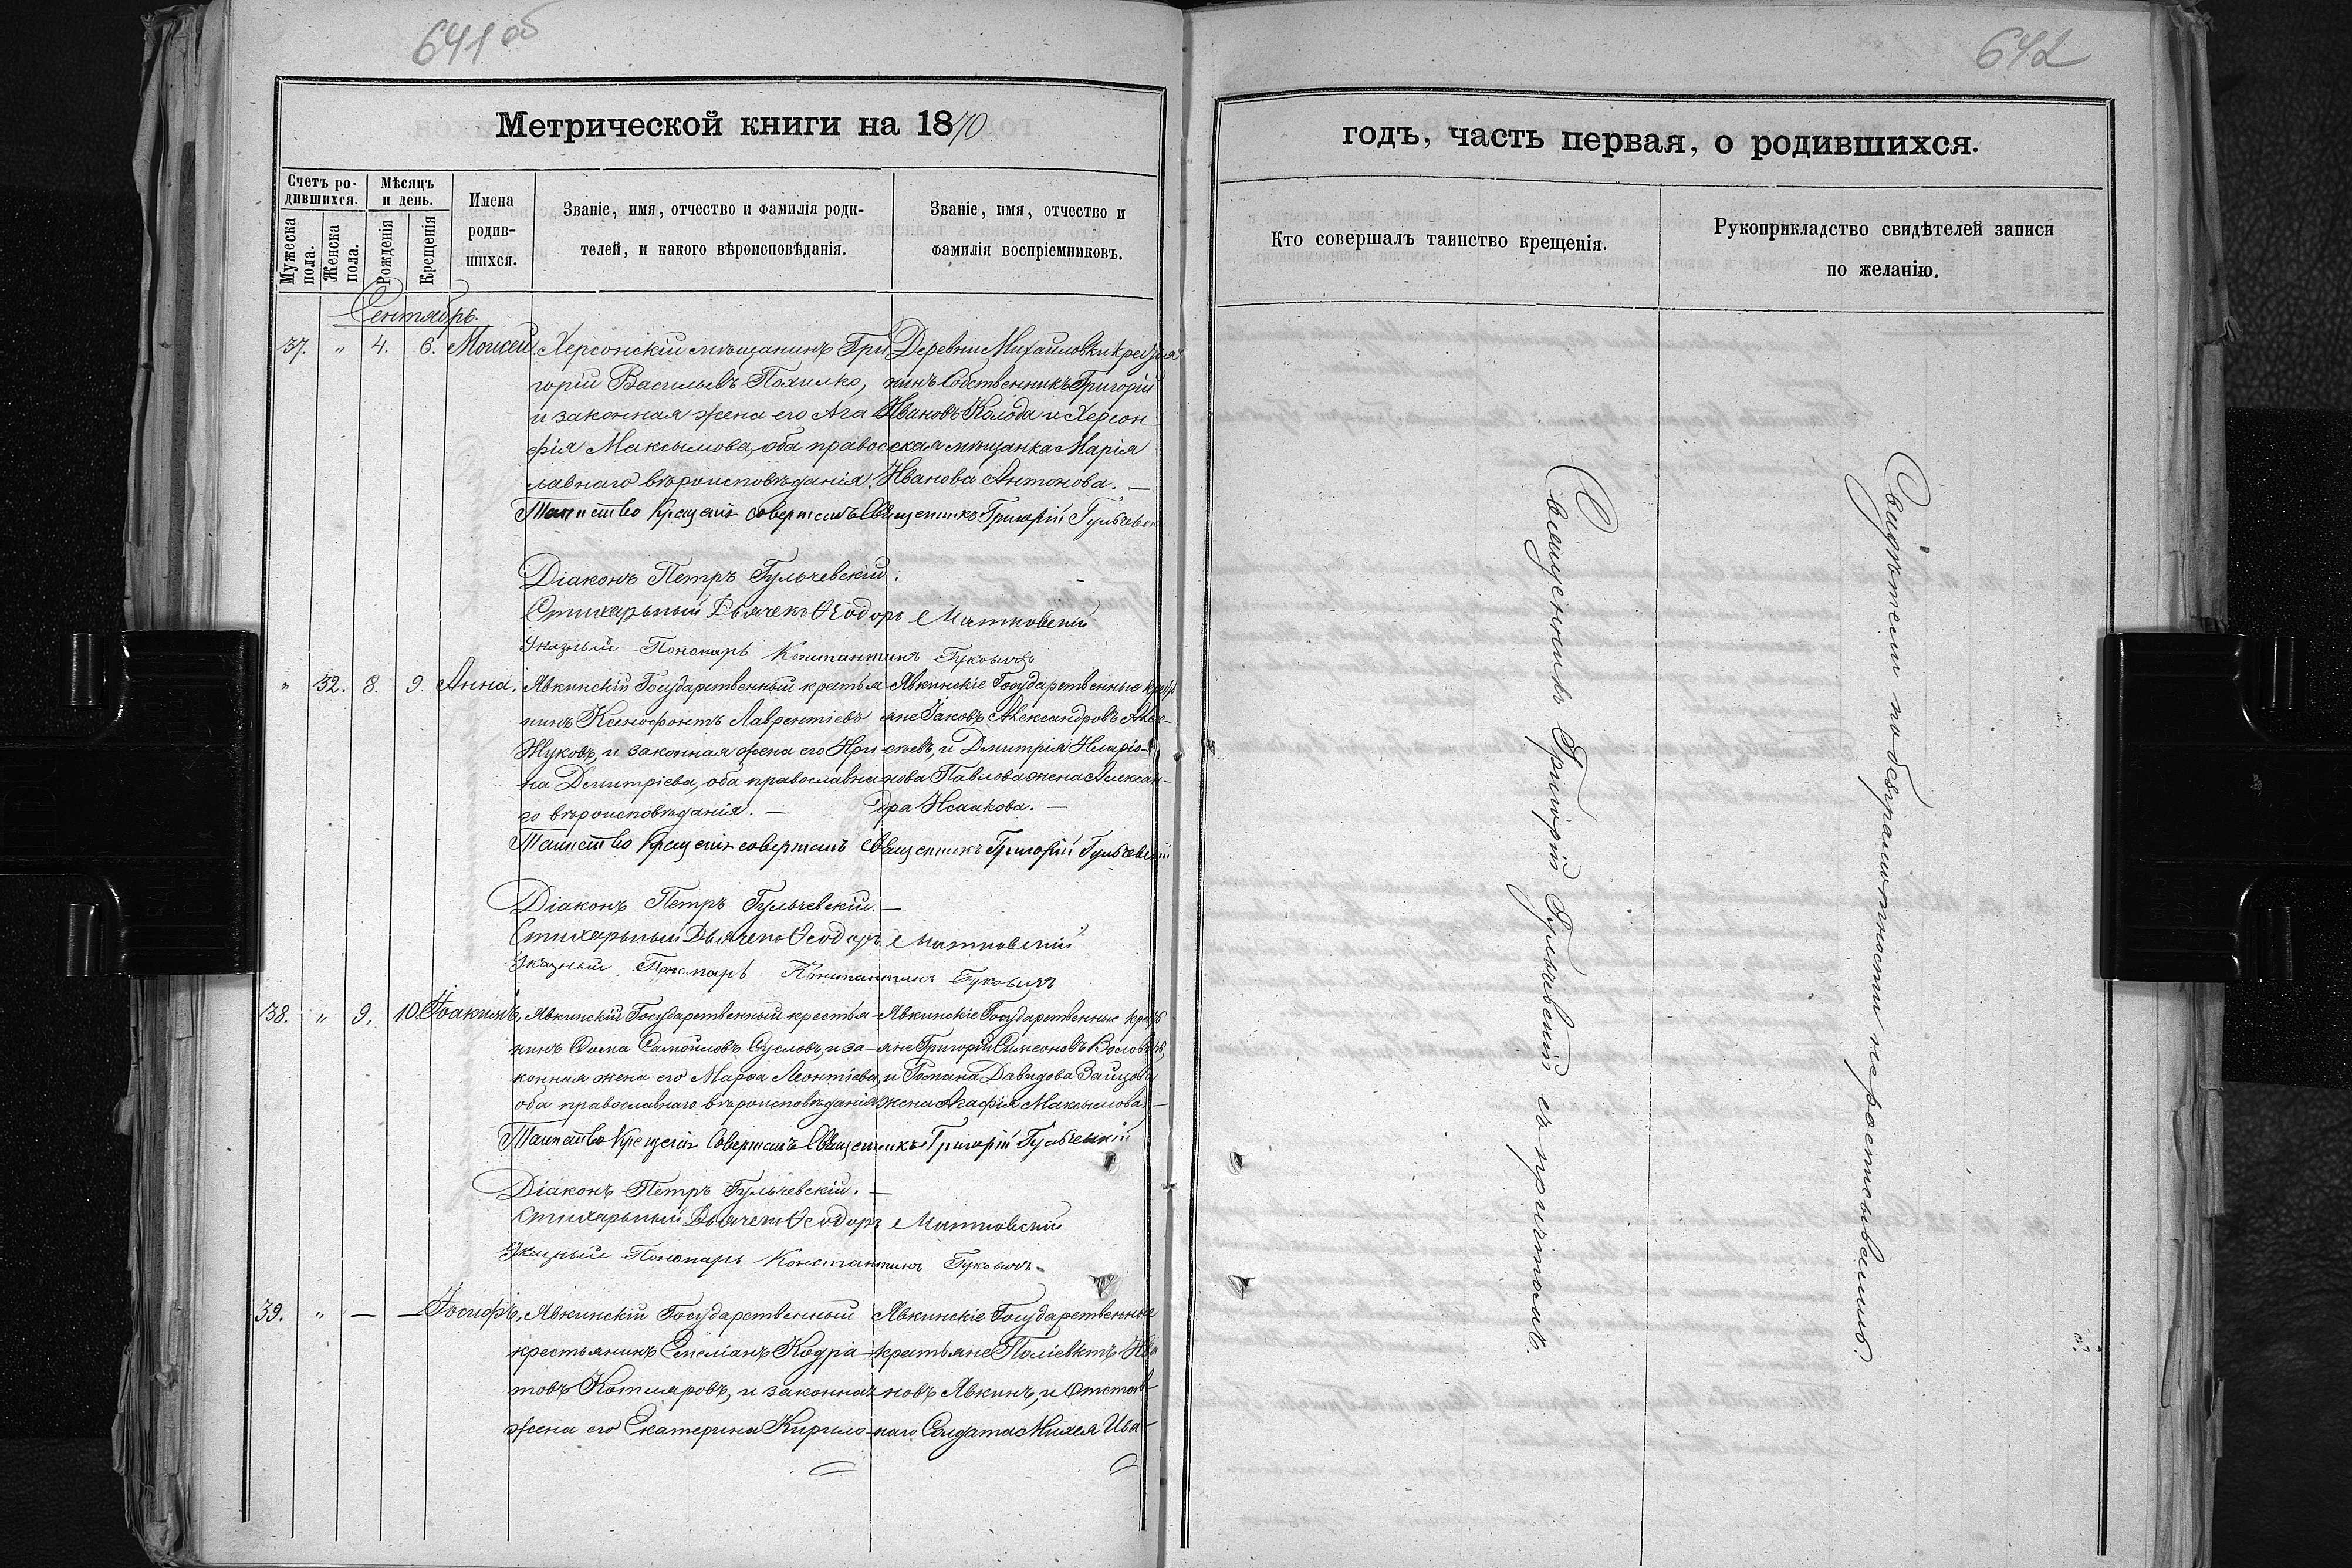 641 об
Метрической книги на 1870
Счетъ ро-
дившихся.
Мужеска пола.
Женска пола.
Мѣсяцъ
и день.
Рожденія
Крещенія
Имена
родив-
шихся.
Званіе, имя, отчество и фамилія роди-
телей, и какого вѣроисповѣданія.
Званіе, имя, отчество и
фамилія воспріемниковъ.
Сентябрь.
37. " 4. 6. Моисей.
Херсонскій мѣщанинъ Гри
горій Васильевъ Похилко,
и законная жена его Ага
фія Максымова, оба правос
лавнаго вѣроисповѣданія.
Деревни Михайловки крестья
нинъ Собственникъ Григорій
Ивановъ Колода и Херсон
ская мѣщанка Марія
Иванова Антонова. —
Таинство Крещенія совершилъ Священникъ Григорій Гульчевскій
Діаконъ Петръ Гульчевскій.
Стихарьный Дьячекъ Ѳеодоръ Матковскій
Указный Пономарь Константинъ Гуковичъ
" 32. 8. 9. Анна.
Явкинскій Государственный крестья
нинъ Ксенофонтъ Лаврентіевъ
Жуковъ, и законная жена его Ири
на Димитріева, оба православна
го вѣроисповѣданія. —
Явкинскіе Государственные кресть
яне Іаковъ Александровъ Алек-
сѣевъ, и Димитрія Иларіо-
нова Павлова жена Алексан-
дра Исаакова. —
Таинство Крещенія совершилъ Священникъ Григорій Гульчевскій
Діаконъ Петръ Гульчевскій. —
Стихарьный Дьячекъ Ѳеодоръ Матковскій
Указный Пономарь Константинъ Гуковичъ
38. " 9. 10. Іоакимъ,
Явкинскій Государственный крестья-
нинъ Ѳома Самойловъ Сусловъ, и за-
конная жена его Марѳа Леонтіева,
оба православнаго вѣроисповѣданія
Явкинскіе Государственные кресть
яне Григорій Симеоновъ
и Романа Давидова Зайцова
жена Агафія Максымова. —
Таинство Крещенія Совершилъ Священникъ Григорій Гульчевскій
Діаконъ Петръ Гульчевскій. —
Стихарьный Дьячекъ Ѳеодоръ Матковскій
Указный Пономарь Константинъ Гуковичъ.
39. " — — Іосифъ,
Явкинскій Государственный
крестьянинъ Емеліанъ Кодра-
товъ Котляровъ, и законная
жена его Екатерина Кирило-
Явкинскіе Государственные
крестьяне Поліевктъ Ива
новъ Явкинъ, и Отстав
наго Солдата Михея Ива-
642
годъ, часть первая, о родившихся.
Кто совершалъ таинство крещенія.
Рукоприкладство свидѣтелей записи
по желанію.
Священникъ Григорій Гульчевскій съ причтомъ.
Свидѣтели по безграмотности не росписывались.